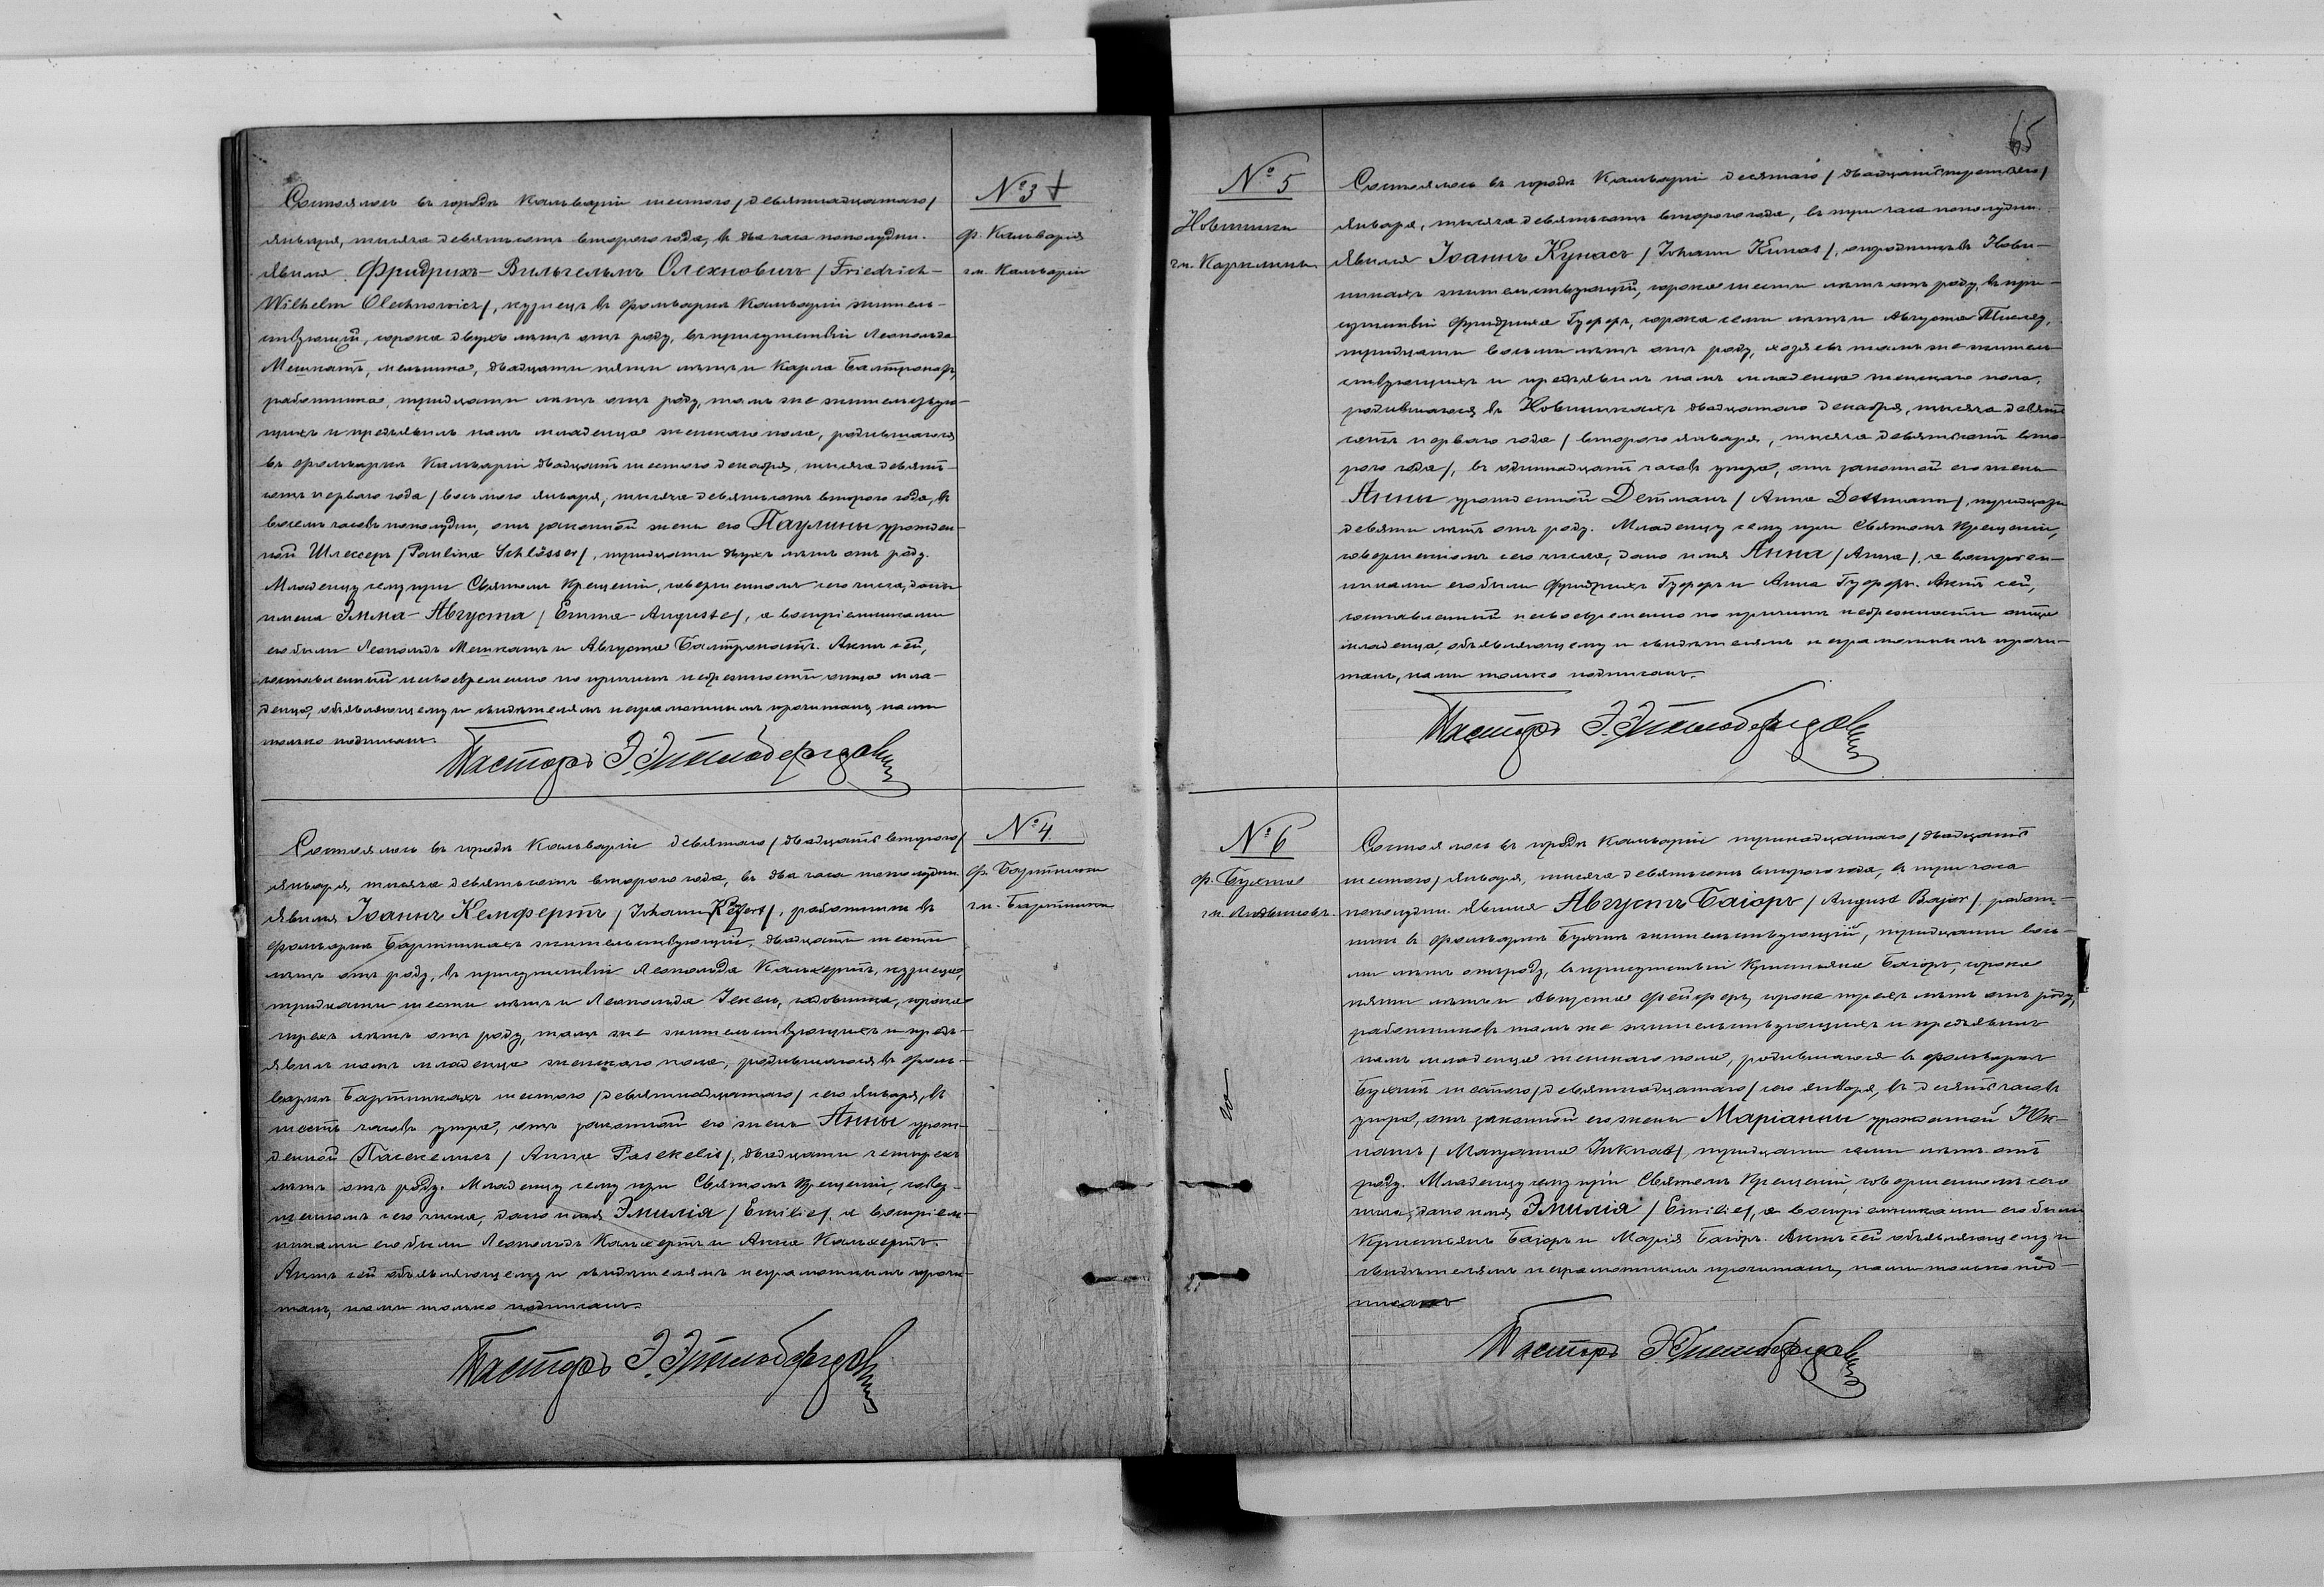 № 3 +
ф. Кальварія
гм. Кальварія
Состоялось въ городѣ Кальваріи шестого /девятнадцатаго/
января, тысяча девятьсотъ второго года, въ два часа пополудни.
Явился Фридрихъ-Вильгельмъ Олехновичъ /Friedrich-
Wilhelm Olechnowicz/, кузнецъ въ фольваркѣ Кальваріи житель-
ствующій, сорока двухъ лѣтъ отъ роду, въ присутствіи Леопольда
Мешкатъ, мельника, двадцати пяти лѣтъ и Карла
работника, тридцати лѣтъ отъ роду, тамъ же жительствую-
щихъ и предъявилъ намъ младенца женскаго пола, родившагося
въ фольваркѣ Кальваріи двадцать шестого декабря, тысяча девять-
сотъ перваго года /восьмого января, тысяча девятьсотъ второго года, въ
восемь часовъ пополудни, отъ законной жены его Паулины урожден-
ной Шлессеръ /Pauline Schlösser/, тридцати двухъ лѣтъ отъ роду.
Младенцу сему при Святомъ Крещеніи, совершенномъ сего числа, даны
имена Эмма-Августа /Emma-Auguste/, а воспріемниками
его были Леопольдъ Мешкатъ и Августа Балтронатъ. Актъ сей,
составленный несвоевременно по причинѣ небрежности отца мла-
денца, объявляющему и свидѣтелямъ неграмотнымъ прочитанъ, нами
только подписанъ.
Пасторъ Э.
№ 4
ф. Бартники
гм. Бартники
Состоялось въ городѣ Кальваріи девятаго /двадцать второго/
января, тысяча девятьсотъ второго года, въ два часа пополудни.
Явился Іоаннъ Кемфертъ /Johann, работникъ въ
фольваркѣ Бартникахъ жительствующій, двадцати шести
лѣтъ отъ роду, въ присутствіи Леопольда Кальхертъ, кузнеца,
тридцати шести лѣтъ и Леопольда садовника, сорока
трехъ лѣтъ отъ роду, тамъ же жительствующихъ и предъ-
явилъ намъ младенца женскаго пола, родившагося въ фоль-
варкѣ Бартникахъ шестого /девятнадцатаго/ сего января, въ
шесть часовъ утра, отъ законной его жены Анны урож-
денной Пасекелисъ /Anna Pasekelis/, двадцати четырехъ
лѣтъ отъ роду. Младенцу сему при Святомъ Крещеніи, совер-
шенномъ сего числа, дано имя Эмилія /Emilie/, а воспріем-
никами его были Леопольдъ Кальхертъ и Анна Кальхертъ.
Актъ сей объявляющему и свидѣтелямъ неграмотнымъ прочи-
танъ, нами только подписанъ.
Пасторъ Э.
65
№ 5
Новиники
гм.
Состоялось въ городѣ Кальваріи десятаго /двадцать третьяго/
января, тысяча девятьсотъ второго года, въ три часа пополудни.
Явился Іоаннъ Кунасъ /Johann Kunas/, въ Нови-
никахъ жительствующій, сорока шести лѣтъ отъ роду, въ при-
сутствіи Фридриха Гуферъ, сорока семи лѣтъ и Августа
тридцати восьми лѣтъ отъ роду, хозяевъ тамъ же житель-
ствующихъ и предъявилъ намъ младенца женскаго пола,
родившагося въ Новиникахъ двадцатаго декабря, тысяча девять-
сотъ перваго года /второго января, тысяча девятьсотъ вто-
рого года/, въ одиннадцать часовъ утра, отъ законной его жены
Анны урожденной Детманъ /Anna Dettmann/, тридцати
девяти лѣтъ отъ роду. Младенцу сему при Святомъ Крещеніи,
совершенномъ сего числа, дано имя Анна /Anna/, а воспріем-
никами его были Фридрихъ Гуферъ и Анна Гуферъ. Актъ сей,
составленный несвоевременно по причинѣ небрежности отца
младенца, объявляющему и свидѣтелямъ неграмотнымъ прочи-
танъ, нами только подписанъ.
Пасторъ Э.
№ 6
ф. Бухта
гм. Людвиновъ
Состоялось въ городѣ Кальваріи тринадцатаго /двадцать
шестого/ января, тысяча девятьсотъ второго года, въ три часа
пополудни. Явился Августъ Баіоръ /August Bajor/, работ-
никъ въ фольваркѣ Бухтѣ жительствующій, тридцати вось-
ми лѣтъ отъ роду, въ присутствіи Кристьяна Баіоръ, сорока
пяти лѣтъ и Августа Фейферъ, сорока трехъ лѣтъ отъ роду,
работниковъ тамъ же жительствующихъ и предъявилъ
намъ младенца женскаго пола, родившагося въ фольваркѣ
Бухтѣ шестого /девятнадцатаго/ сего января, въ десять часовъ
утра, отъ законной его жены Маріанны урожденной Юк-
натъ /Maryanna Juknat/ тридцати семи лѣтъ отъ
роду. Младенцу сему при Святомъ Крещеніи, совершенномъ сего
числа, дано имя Эмилія /Emilie/, а воспріемниками его были
Кристьянъ Баіоръ и Марія Баіоръ. Актъ сей объявляющему и
свидѣтелямъ неграмотнымъ прочитанъ, нами только под-
писанъ
Пасторъ Э.